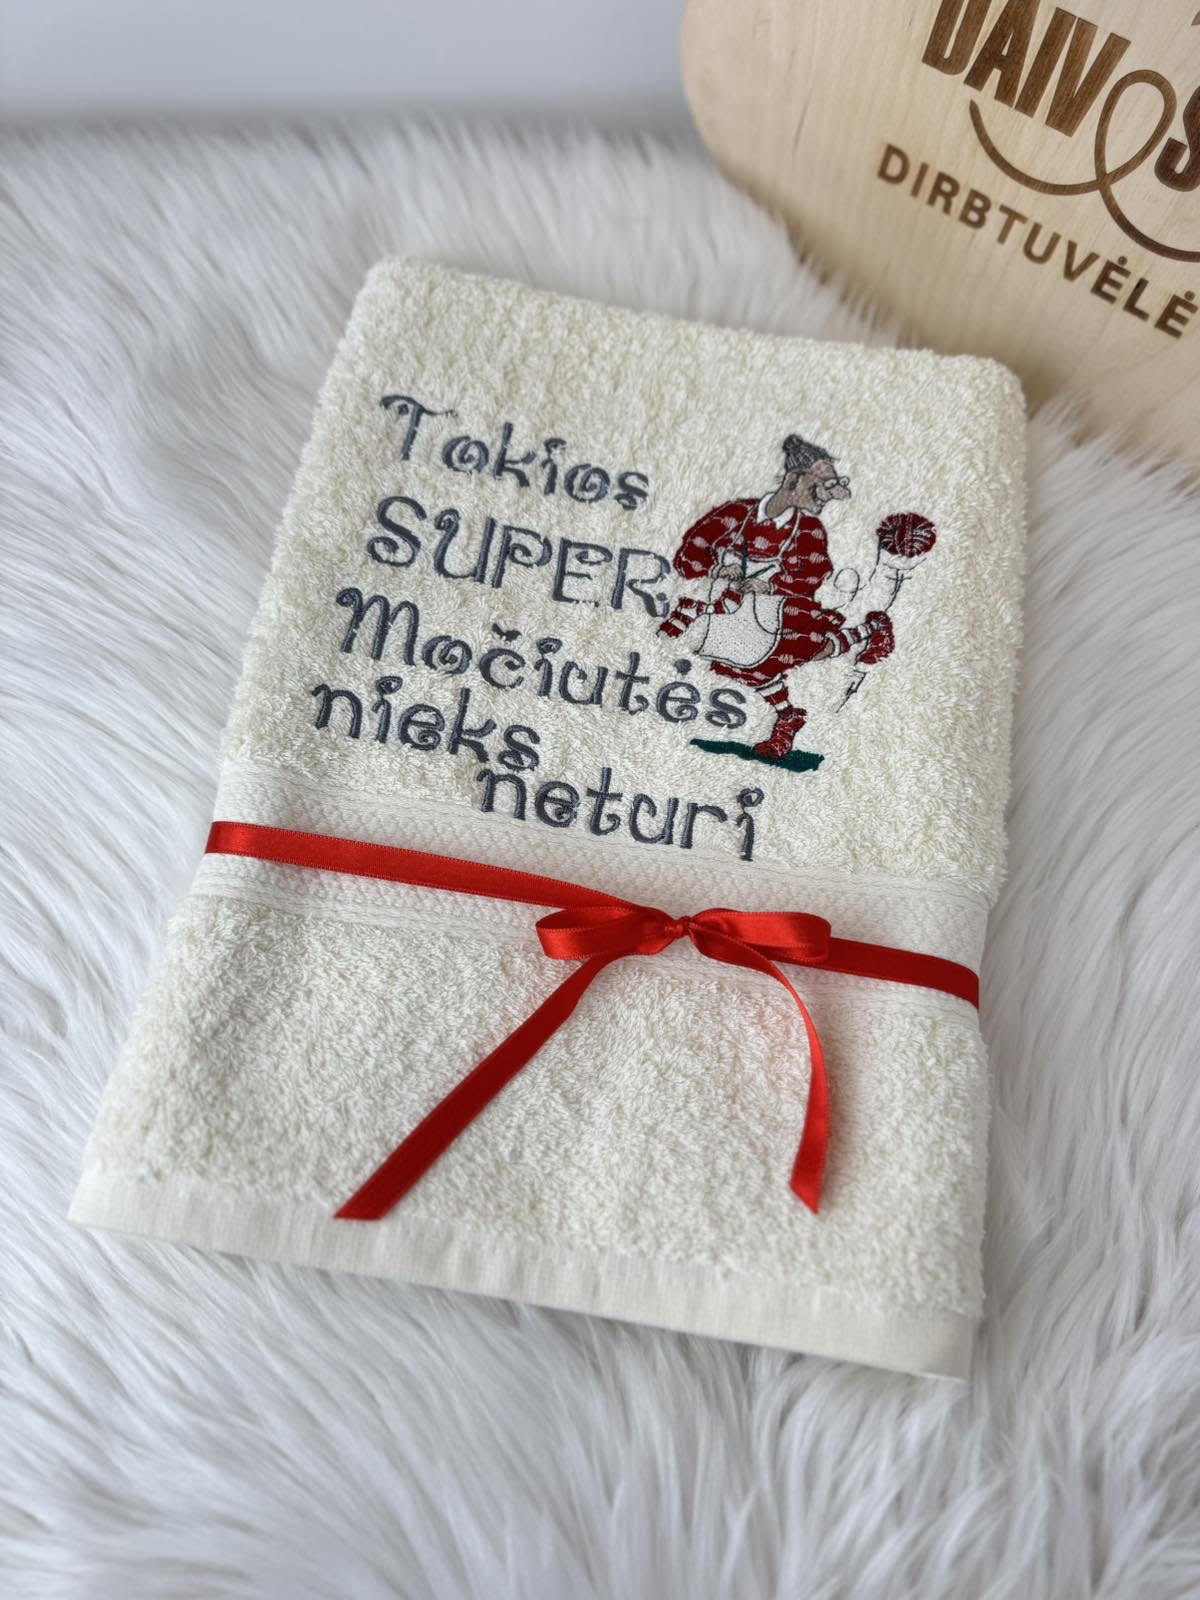 DAIVOS
DIRBTUVĖLĖ
Tokios
SUPER
Močiutės
nieks
neturi